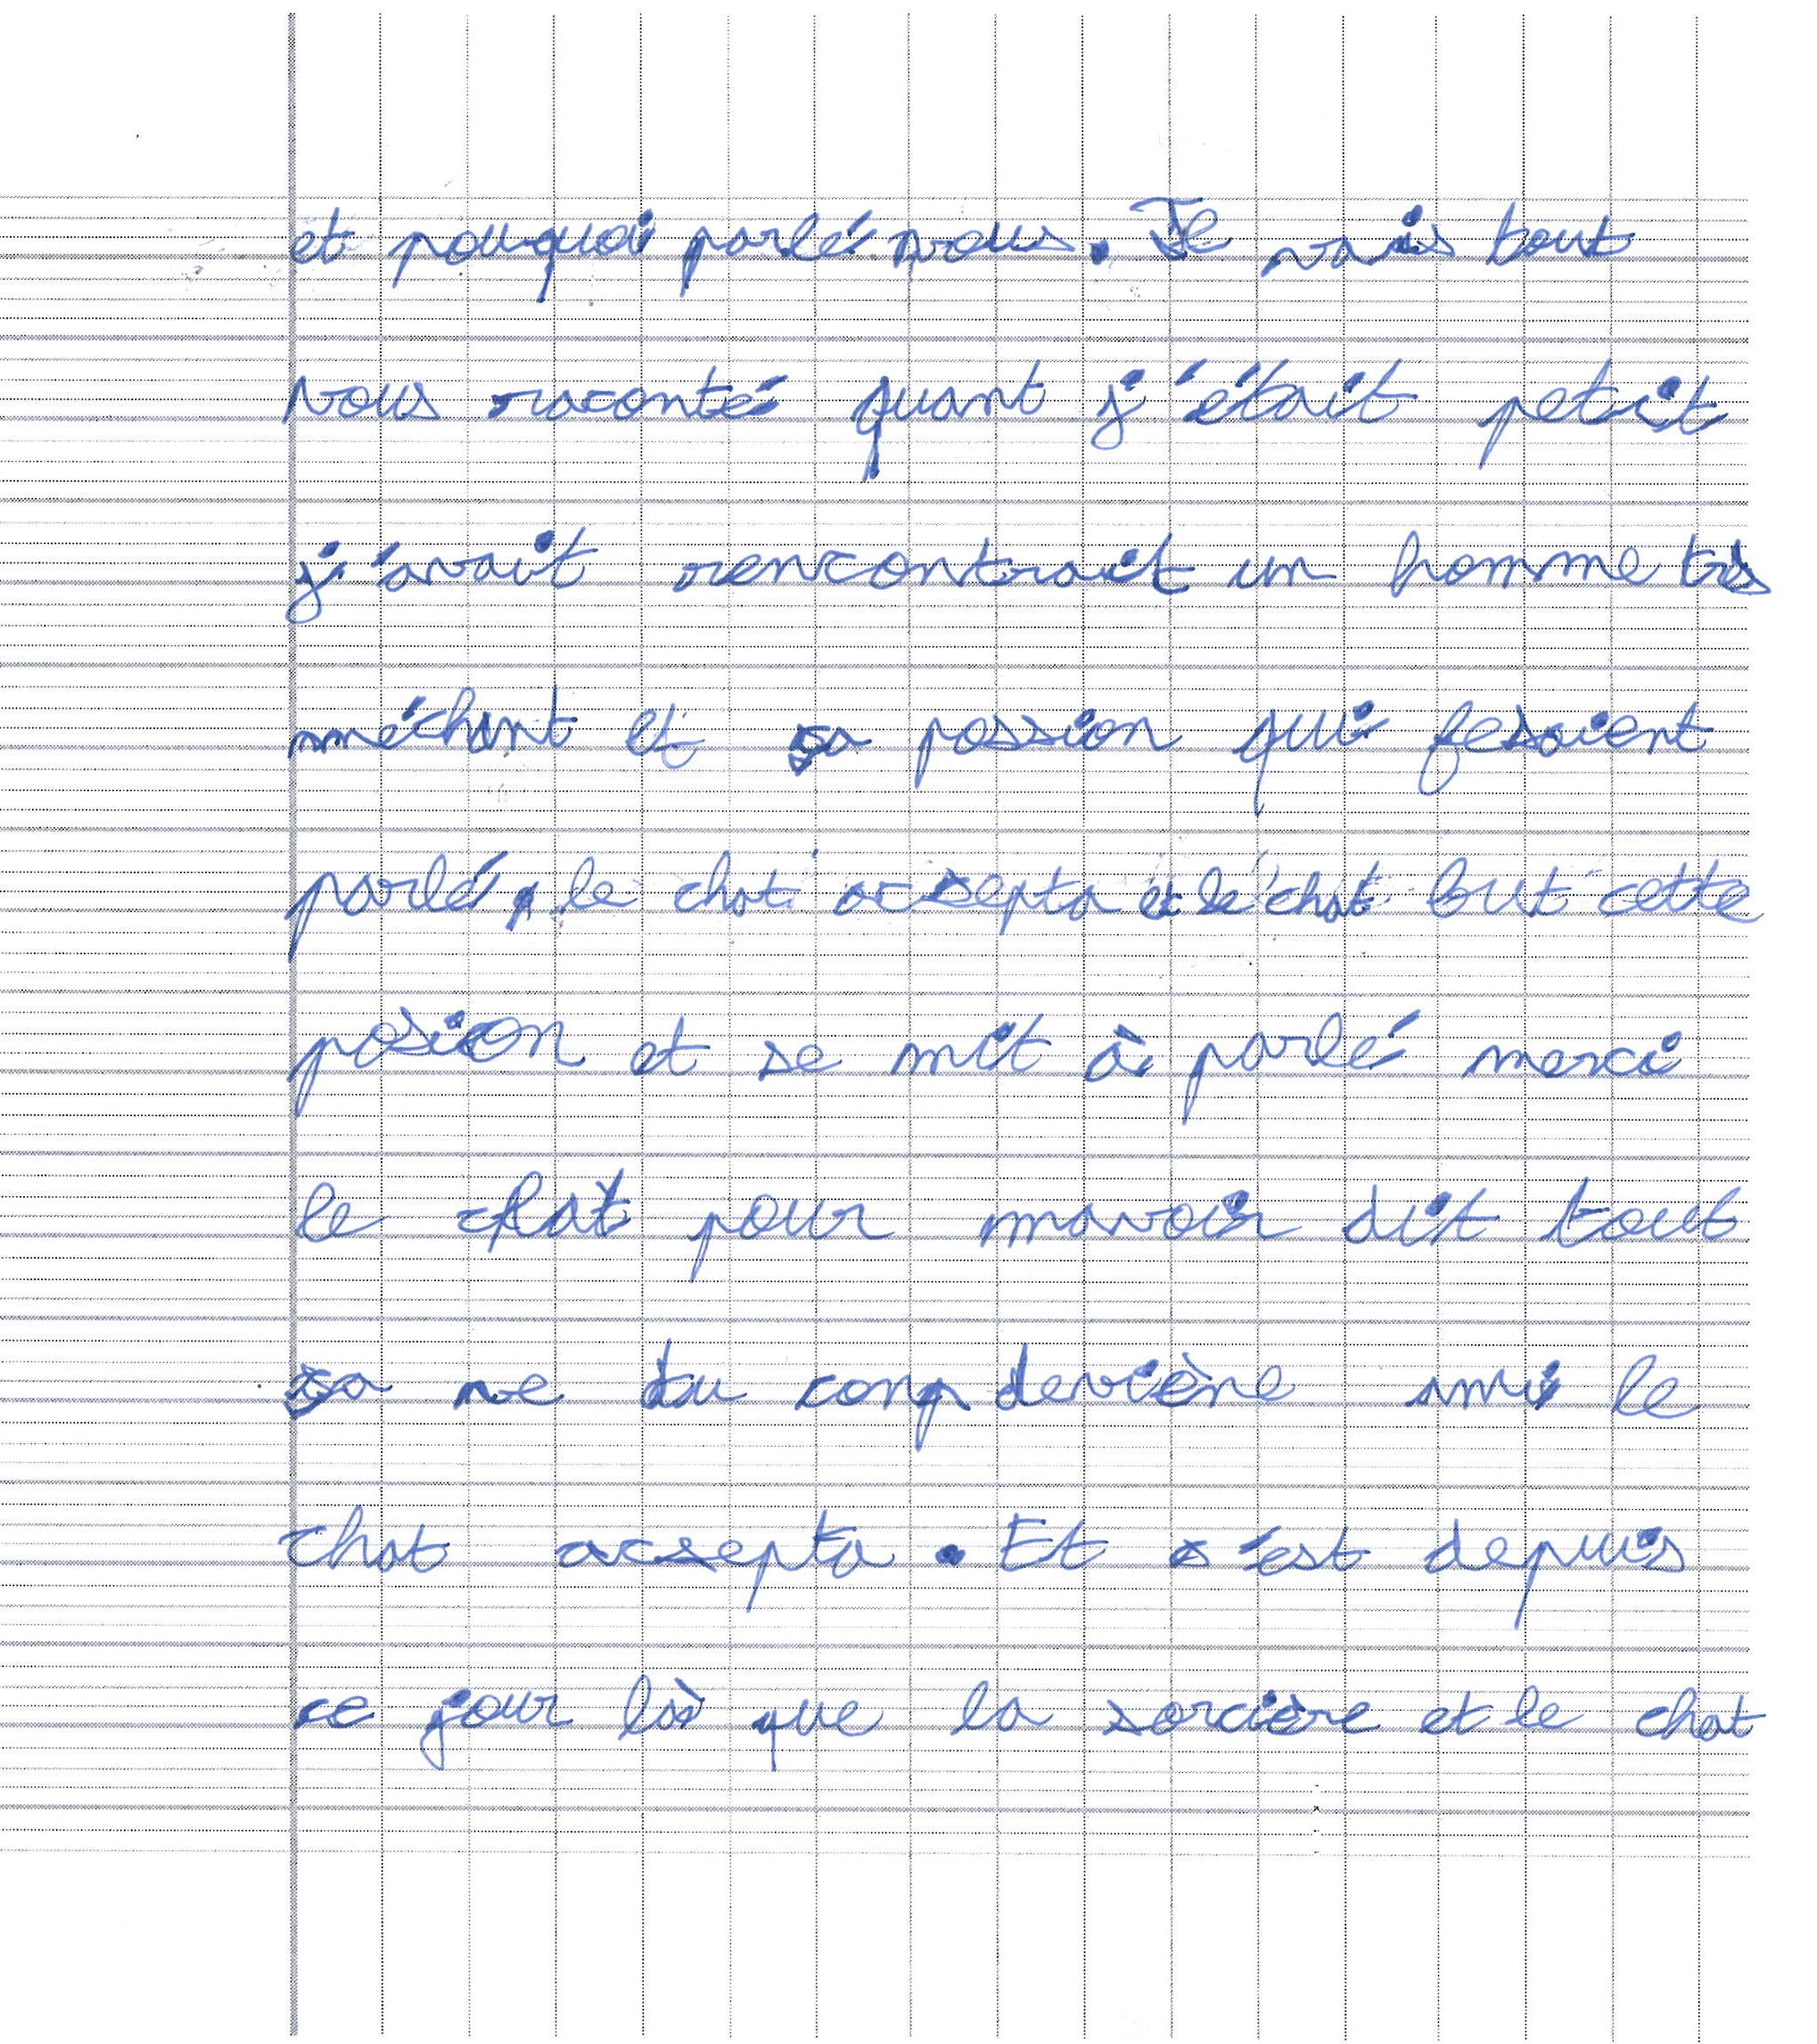 et pouquoi parlé vous. Je vais tout
vous raconté quant j'était petit
j'avait rencontrait un homme très
méchant et sa possion qui fesaient
parlé, le chat acsepta et le chat but cette
posion et se mit à parlé merci
le chat pour mavoir dit tout
sa ne tu conp deviène ami le
chat acsepta. Et s'est depuis
ce jour là que la sorcière et le chat